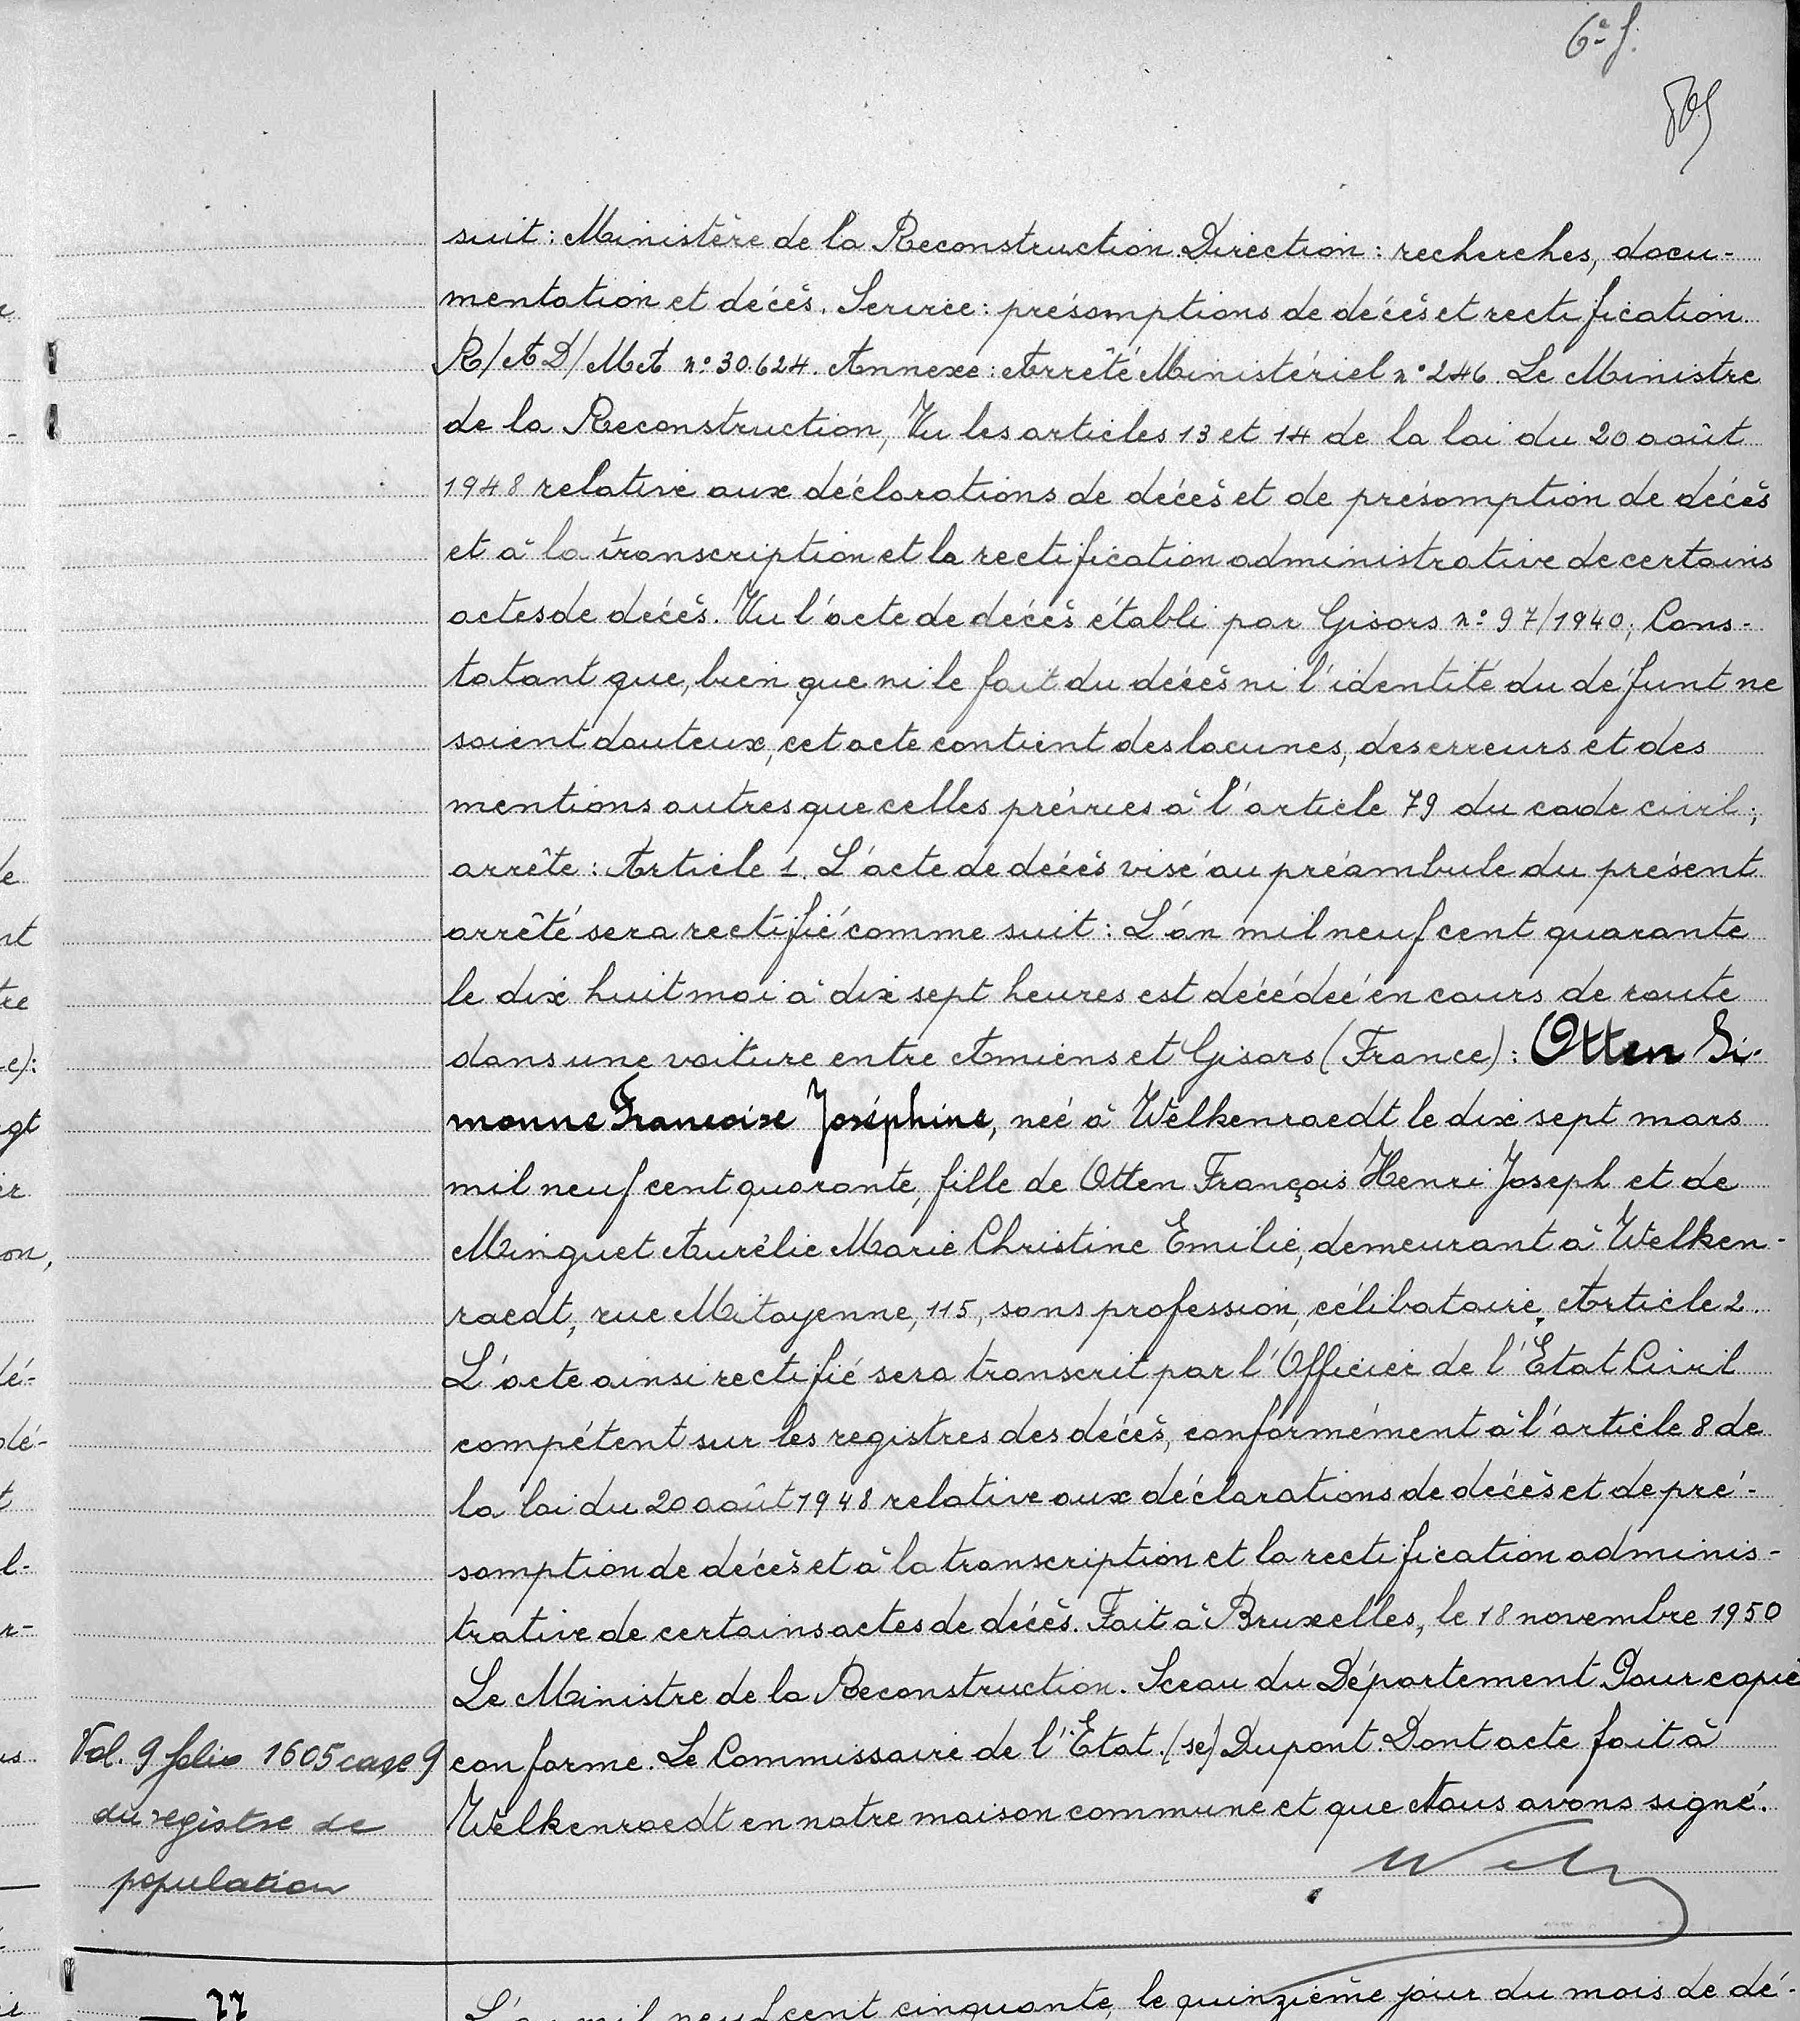 6e f.
suit : Ministère de la Reconstruction. Direction : recherches, docu-
mentation et décès. Service : présomptions de décès et rectification.
R/AD/MA n° 30.624. Annexe : Arrêté Ministériel n° 246. Le Ministre
de la Reconstruction, Vu les articles 13 et 14 de la loi du 20 août
1948 relative aux déclarations de décès et de présomption de décès
et à la transcription et la rectification administrative de certains
actes de décès. Vu l'acte de décès établi par Gisors n° 97/1940; Cons-
tatant que, bien que ni le fait du décès ni l'identité du défunt ne
soient douteux, cet acte contient des lacunes, des erreurs et des
mentions autres que celles prévues à l'article 79 du code civil;
arrête : Article 1. L'acte de décès visé au préambule du présent
arrêté sera rectifié comme suit : L'an mil neuf cent quarante
le dix huit mai à dix sept heures est décédée en cours de route
dans une voiture entre Amiens et Gisors (France) : Otten Si-
monne Françoise Joséphine, née à Welkenraedt le dix sept mars
mil neuf cent quarante, fille de Otten François Henri Joseph et de
Minguet Aurélie Marie Christine Emilie, demeurant à Welken-
raedt, rue Mitoyenne, 115, sans profession, célibataire. Article 2.
L'acte ainsi rectifié sera transcrit par l'Officier de l'Etat Civil
compétent sur les registres des décès, conformément à l'article 8 de
la loi du 20 août 1948 relative aux déclarations de décès et de pré-
somption de décès et à la transcription et la rectification adminis-
trative de certains actes de décès. Fait à Bruxelles, le 18 novembre 1950
Le Ministre de la Reconstruction. Sceau du Département. Pour copie
conforme. Le Commissaire de l'Etat. (sé) Dupont. Dont acte fait à
Welkenraedt en notre maison commune et que Nous avons signé.
Vol. 9 folio 1605 case 9
du registre de
population
77
L'an mil neuf cent cinquante, le quinzième jour du mois de dé-